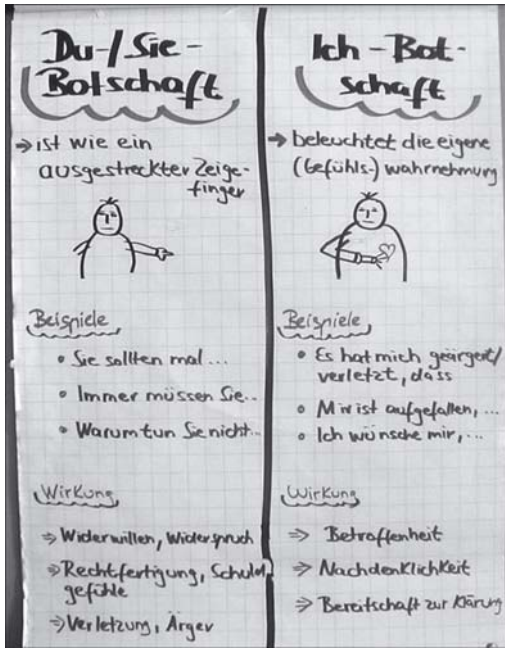 Du-/Sie-
Botschaft
→ ist wie ein
ausgestreckter Zeige-
finger
Beispiele
• Sie sollten mal...
• Immer müssen Sie..
• Warum tun Sie nicht..
Wirkung
⇒ Widerwillen, Widerspruch
⇒ Rechtfertigung, Schuld
gefühle
⇒ Verletzung, Ärger
Ich-Bot-
schaft
→ beleuchtet die eigene
(Gefühls-) wahrnehmung
Beispiele
• Es hat mich geärgert/
verletzt, dass
• Mir ist aufgefallen, ...
• Ich wünsche mir, ...
Wirkung
⇒ Betroffenheit
⇒ Nachdenklichkeit
⇒ Bereitschaft zur Klärung